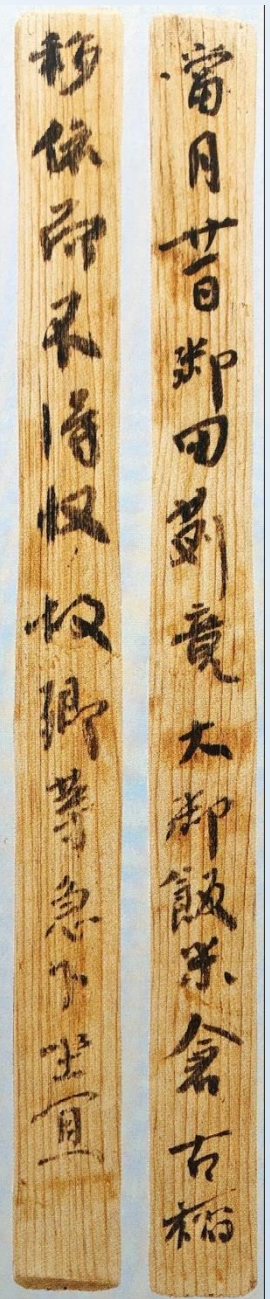 當月廿一日御田苅竟大御飯米倉古稲
移依而不得収故卿等急下坐宜